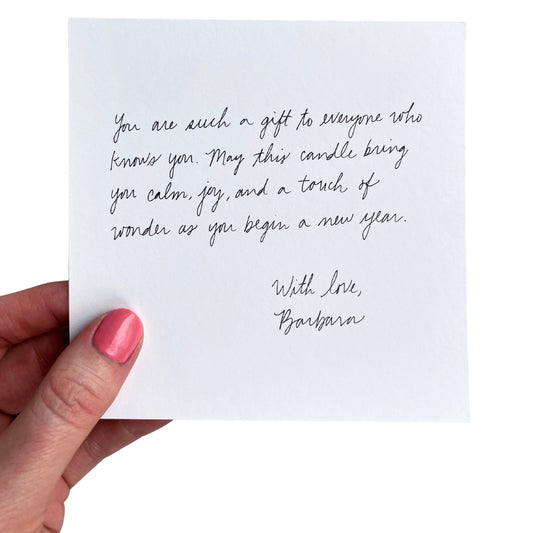 You are such a gift to everyone who
knows you. May this candle bring
you calm, joy, and a touch of
wonder as you begin a new year.
With love,
Barbara